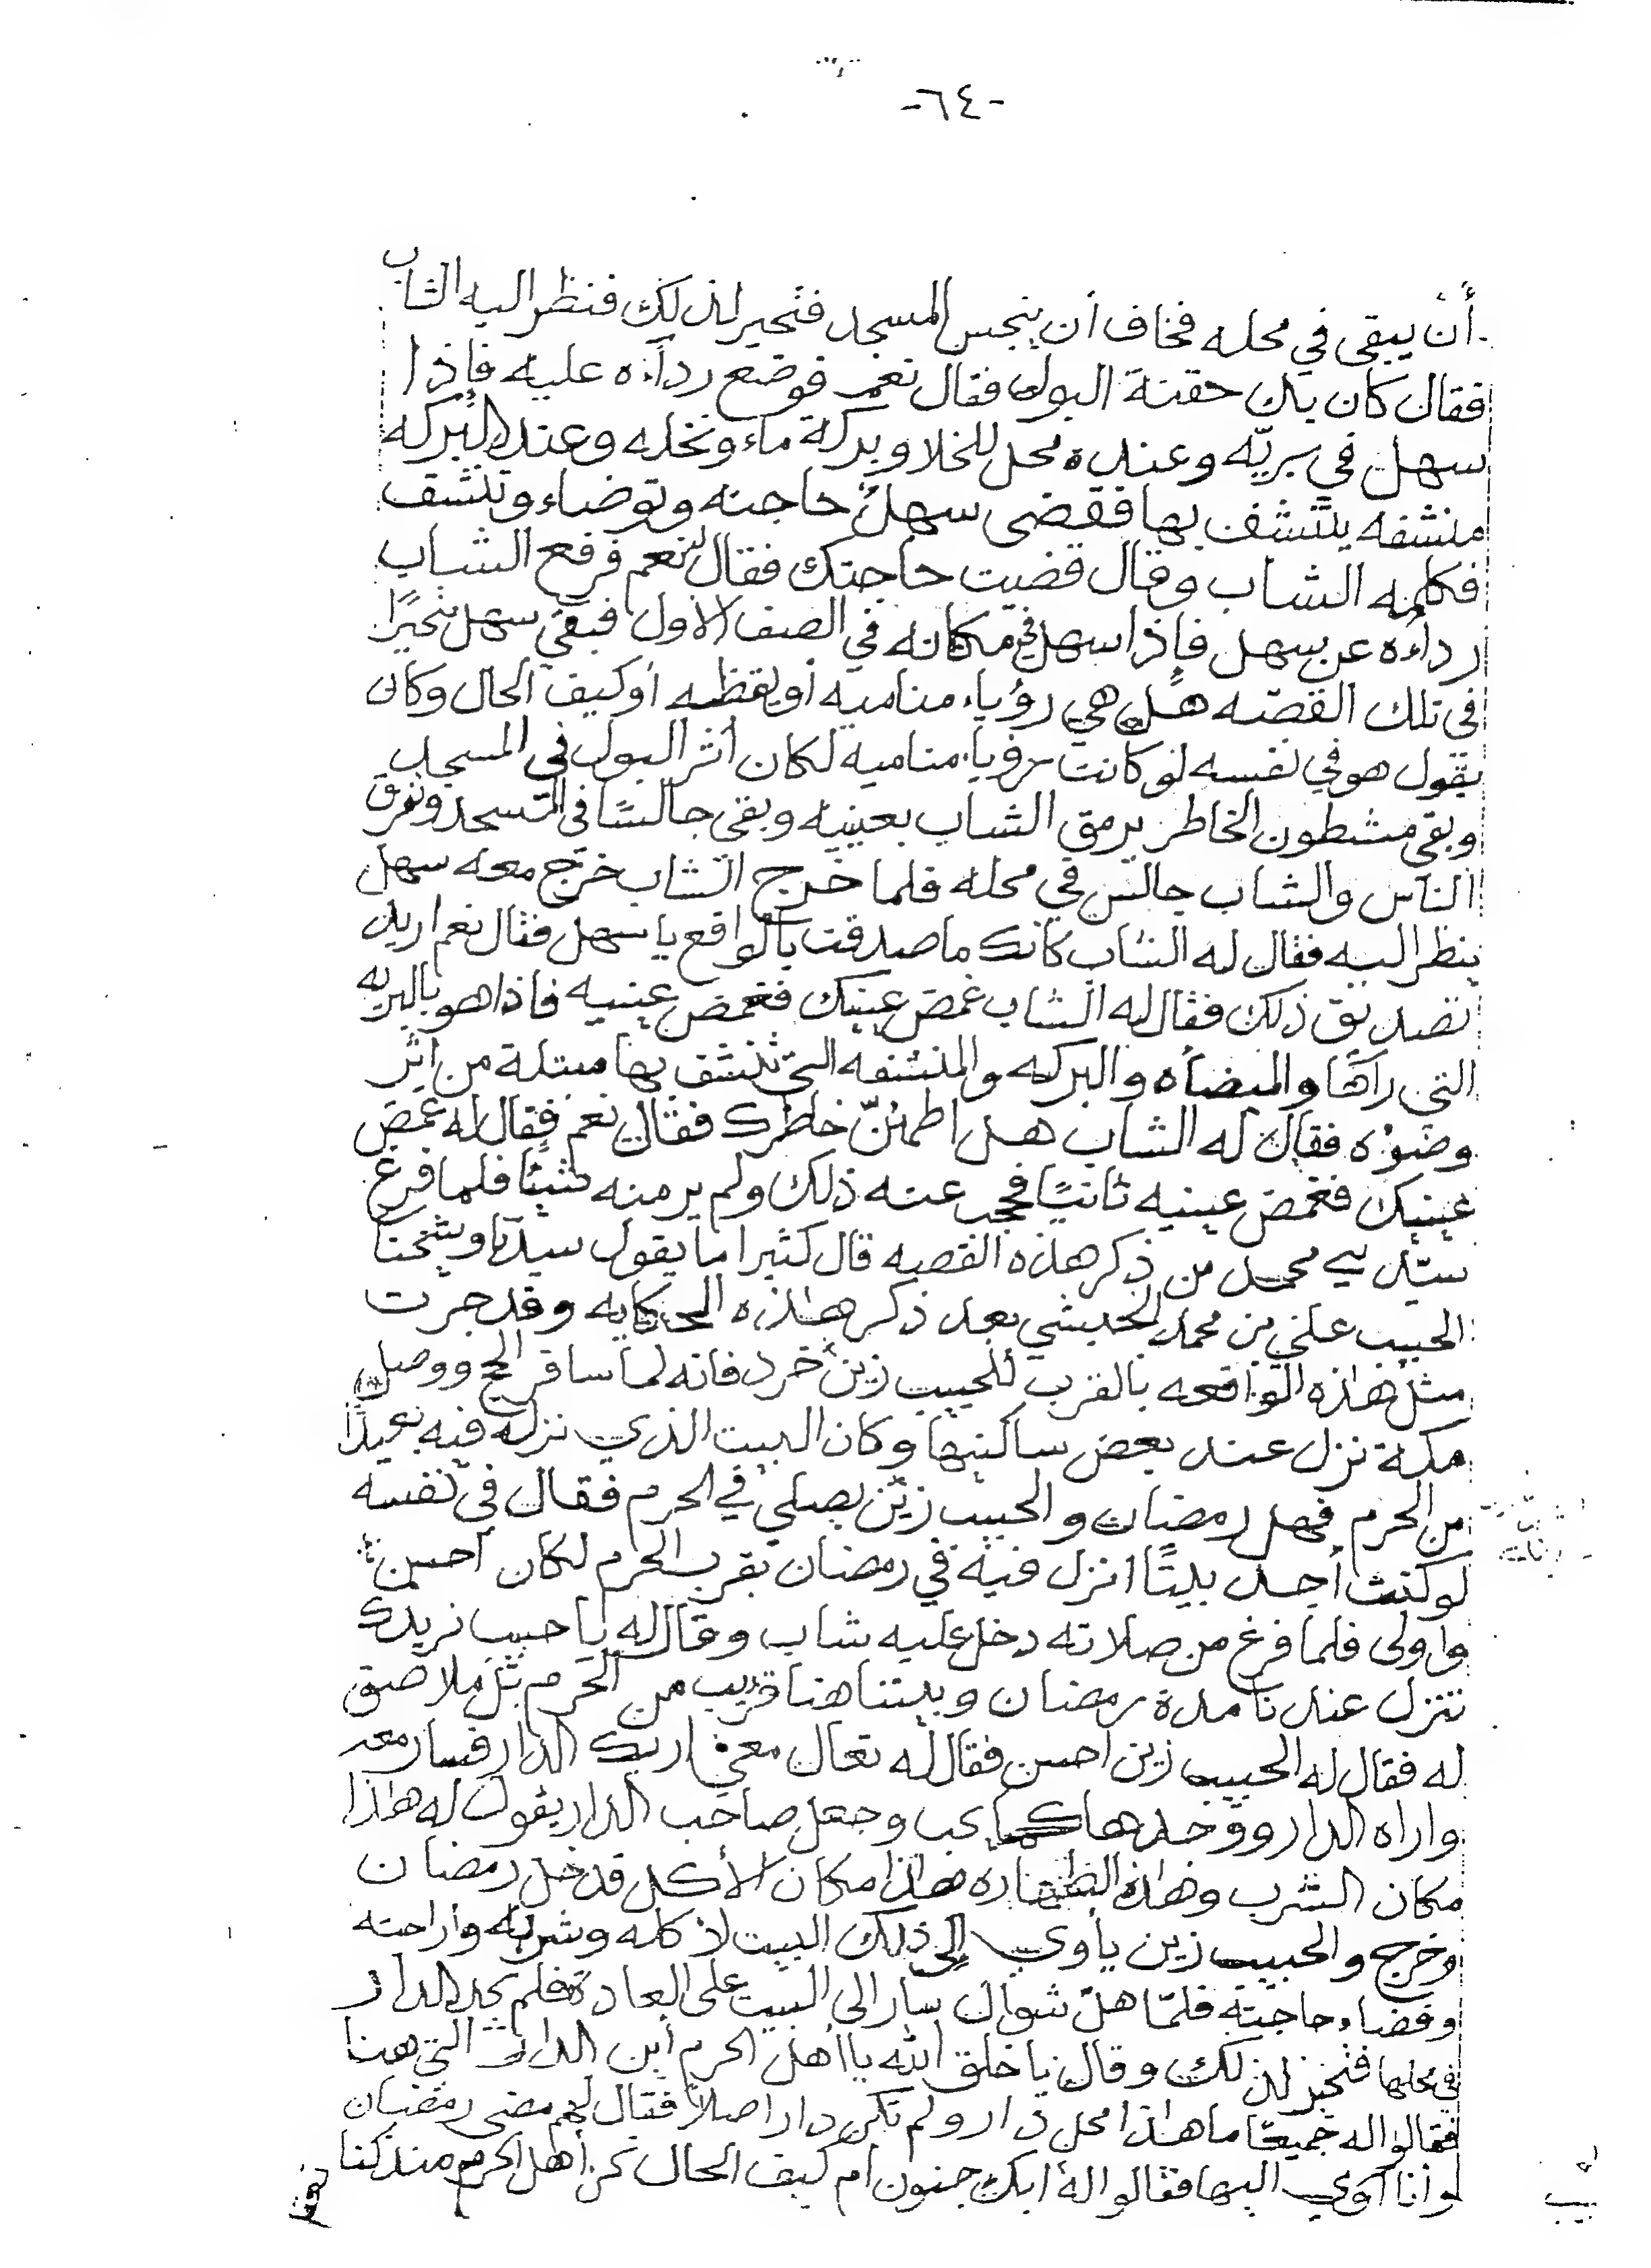 -٦٤-
أن يبقى في محله فخاف أن ينجس المسجد فتحير لذلك فنظر اليه الشاب
فقال كان بك حقنة البول فقال نعم فوضع رداءه عليه فإذا
سهل في بريّه وعنده محل للخلا وبركة ماء ونخله وعند البركه
منشفه يتنشف بها فقضى سهل حاجته وتوضاء وتنشف
فكلمه الشاب وقال قضيت حاجتك فقال نعم فرفع الشاب
رداءه عن سهل فإذا سهل في مكانه في الصف الأول فبقي سهل متحيرًا
في تلك القصّه هل هي رؤياء مناميه أو يقظه أو كيف الحال وكان
يقول هو في نفسه لو كانت رؤياء مناميه لكان أثر البول في المسجد
وبقي مشطون الخاطر يرمق الشاب بعينيه وبقي جالسًا في المسجد وتفرق
الناس والشاب جالس في محله فلما خرج الشاب خرج معه سهل
ينظر اليه فقال له الشاب كانك ما صدقت بالواقع يا سهل فقال نعم اريد
تصديق ذلك فقال له الشاب غمض عينيك فغمض عينيه فاذا هو بالبريه
التي رآها والميضأه والبركه والمنشفه التي تنشف بها مبتلة من اثر
وضوءه فقال له الشاب هل اطمئنّ خاطرك فقال نعم فقال له غمض
عينيك فغمض عينيه ثانيًا فحجب عنه ذلك ولم ير منه شيئًا فلما فرغ
سيّدي محمد من ذكر هذه القصه قال كثيرا ما يقول سيدنا وشيخنا
الحبيب علي بن محمد الحبشي بعد ذكر هذه الحكايه وقد جرت
مثل هذه الواقعه بالقرب للحبيب زين خرد فانه لما سافر الحج ووصل
مكة نزل عند بعض ساكنيها وكان البيت الذي نزل فيه بعيدًا
من الحرم فهل رمضان والحبيب زين يصلي في الحرم فقال في نفسه
لو كنت أجد بيتًا انزل فيه في رمضان بقرب الحرم لكان أحسن
واولى فلما فرغ من صلاته دخل عليه شاب وقال له يا حبيب نريدك
تنزل عندنا مدة رمضان وبيتنا هنا قريب من الحرم بل ملاصق
له فقال له الحبيب زين احسن فقال له تعال معي اريك الدار فسار معه
واراه الدار ووجدها كما يحب وجعل صاحب الدار يقول له هذا
مكان الشرب وهذه الطهاره هذا مكان الأكل فدخل رمضان
وخرج والحبيب زين يأوي إلى ذلك البيت لأكله وشربه وراحته
وقضاء حاجته فلمّا هلّ شوال سار الى البيت على العادة فلم يجد الدار
في محلها فتحير لذلك وقال يا خلق الله يا أهل الحرم أين الدار التي هنا
فقالوا له جميعًا ما هذا محل دار ولم تكن دار اصلا فقال لهم مضى رمضان
وأنا آوي اليها فقالوا له أبك جنون أم كيف الحال نحن أهل الحرم منذ كنا